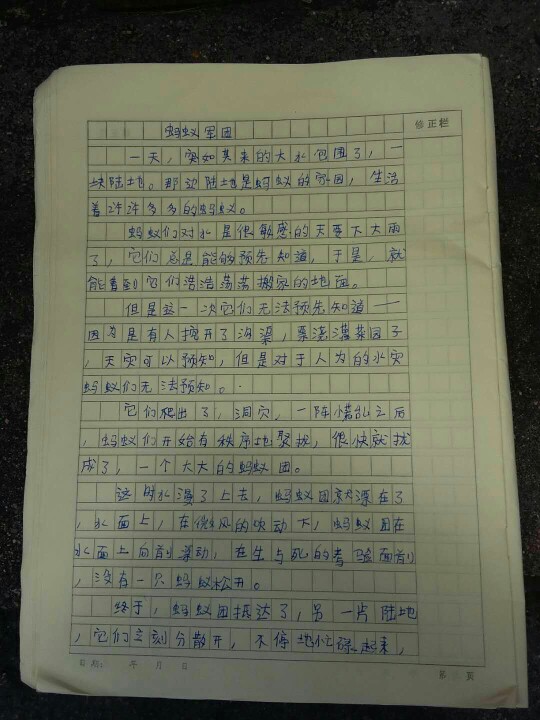 修正栏
蚂蚁军团
一天，突如其来的大水包围了，一
块陆地。那边陆地是蚂蚁的家园，生活
着许许多多的蚂蚁。
蚂蚁们对水是很敏感的天要下大雨
了，它们总是能够预先知道，于是，就
能看到它们浩浩荡荡搬家的地面。
但是这一次它们无法预先知道——
因为是有人挖开了沟渠，灌菜园子
，天灾可以预知，但是对于人为的水灾
蚂蚁们无法预知。
它们爬出了，洞穴，一阵慌乱之后
，蚂蚁们开始有秩序地聚拢，很快就拢
成了，一个大大的蚂蚁团。
这时水漫了上去，蚂蚁团就漂在了
，水面上，在微风的吹动下，蚂蚁团在
水面上向前漂动，在生与死的考验面前
，没有一只蚂蚁松开。
终于，蚂蚁团抵达了，另一片陆地
，它们立刻分散开，不停地忙碌起来，
日期： 年 月 日
第 页